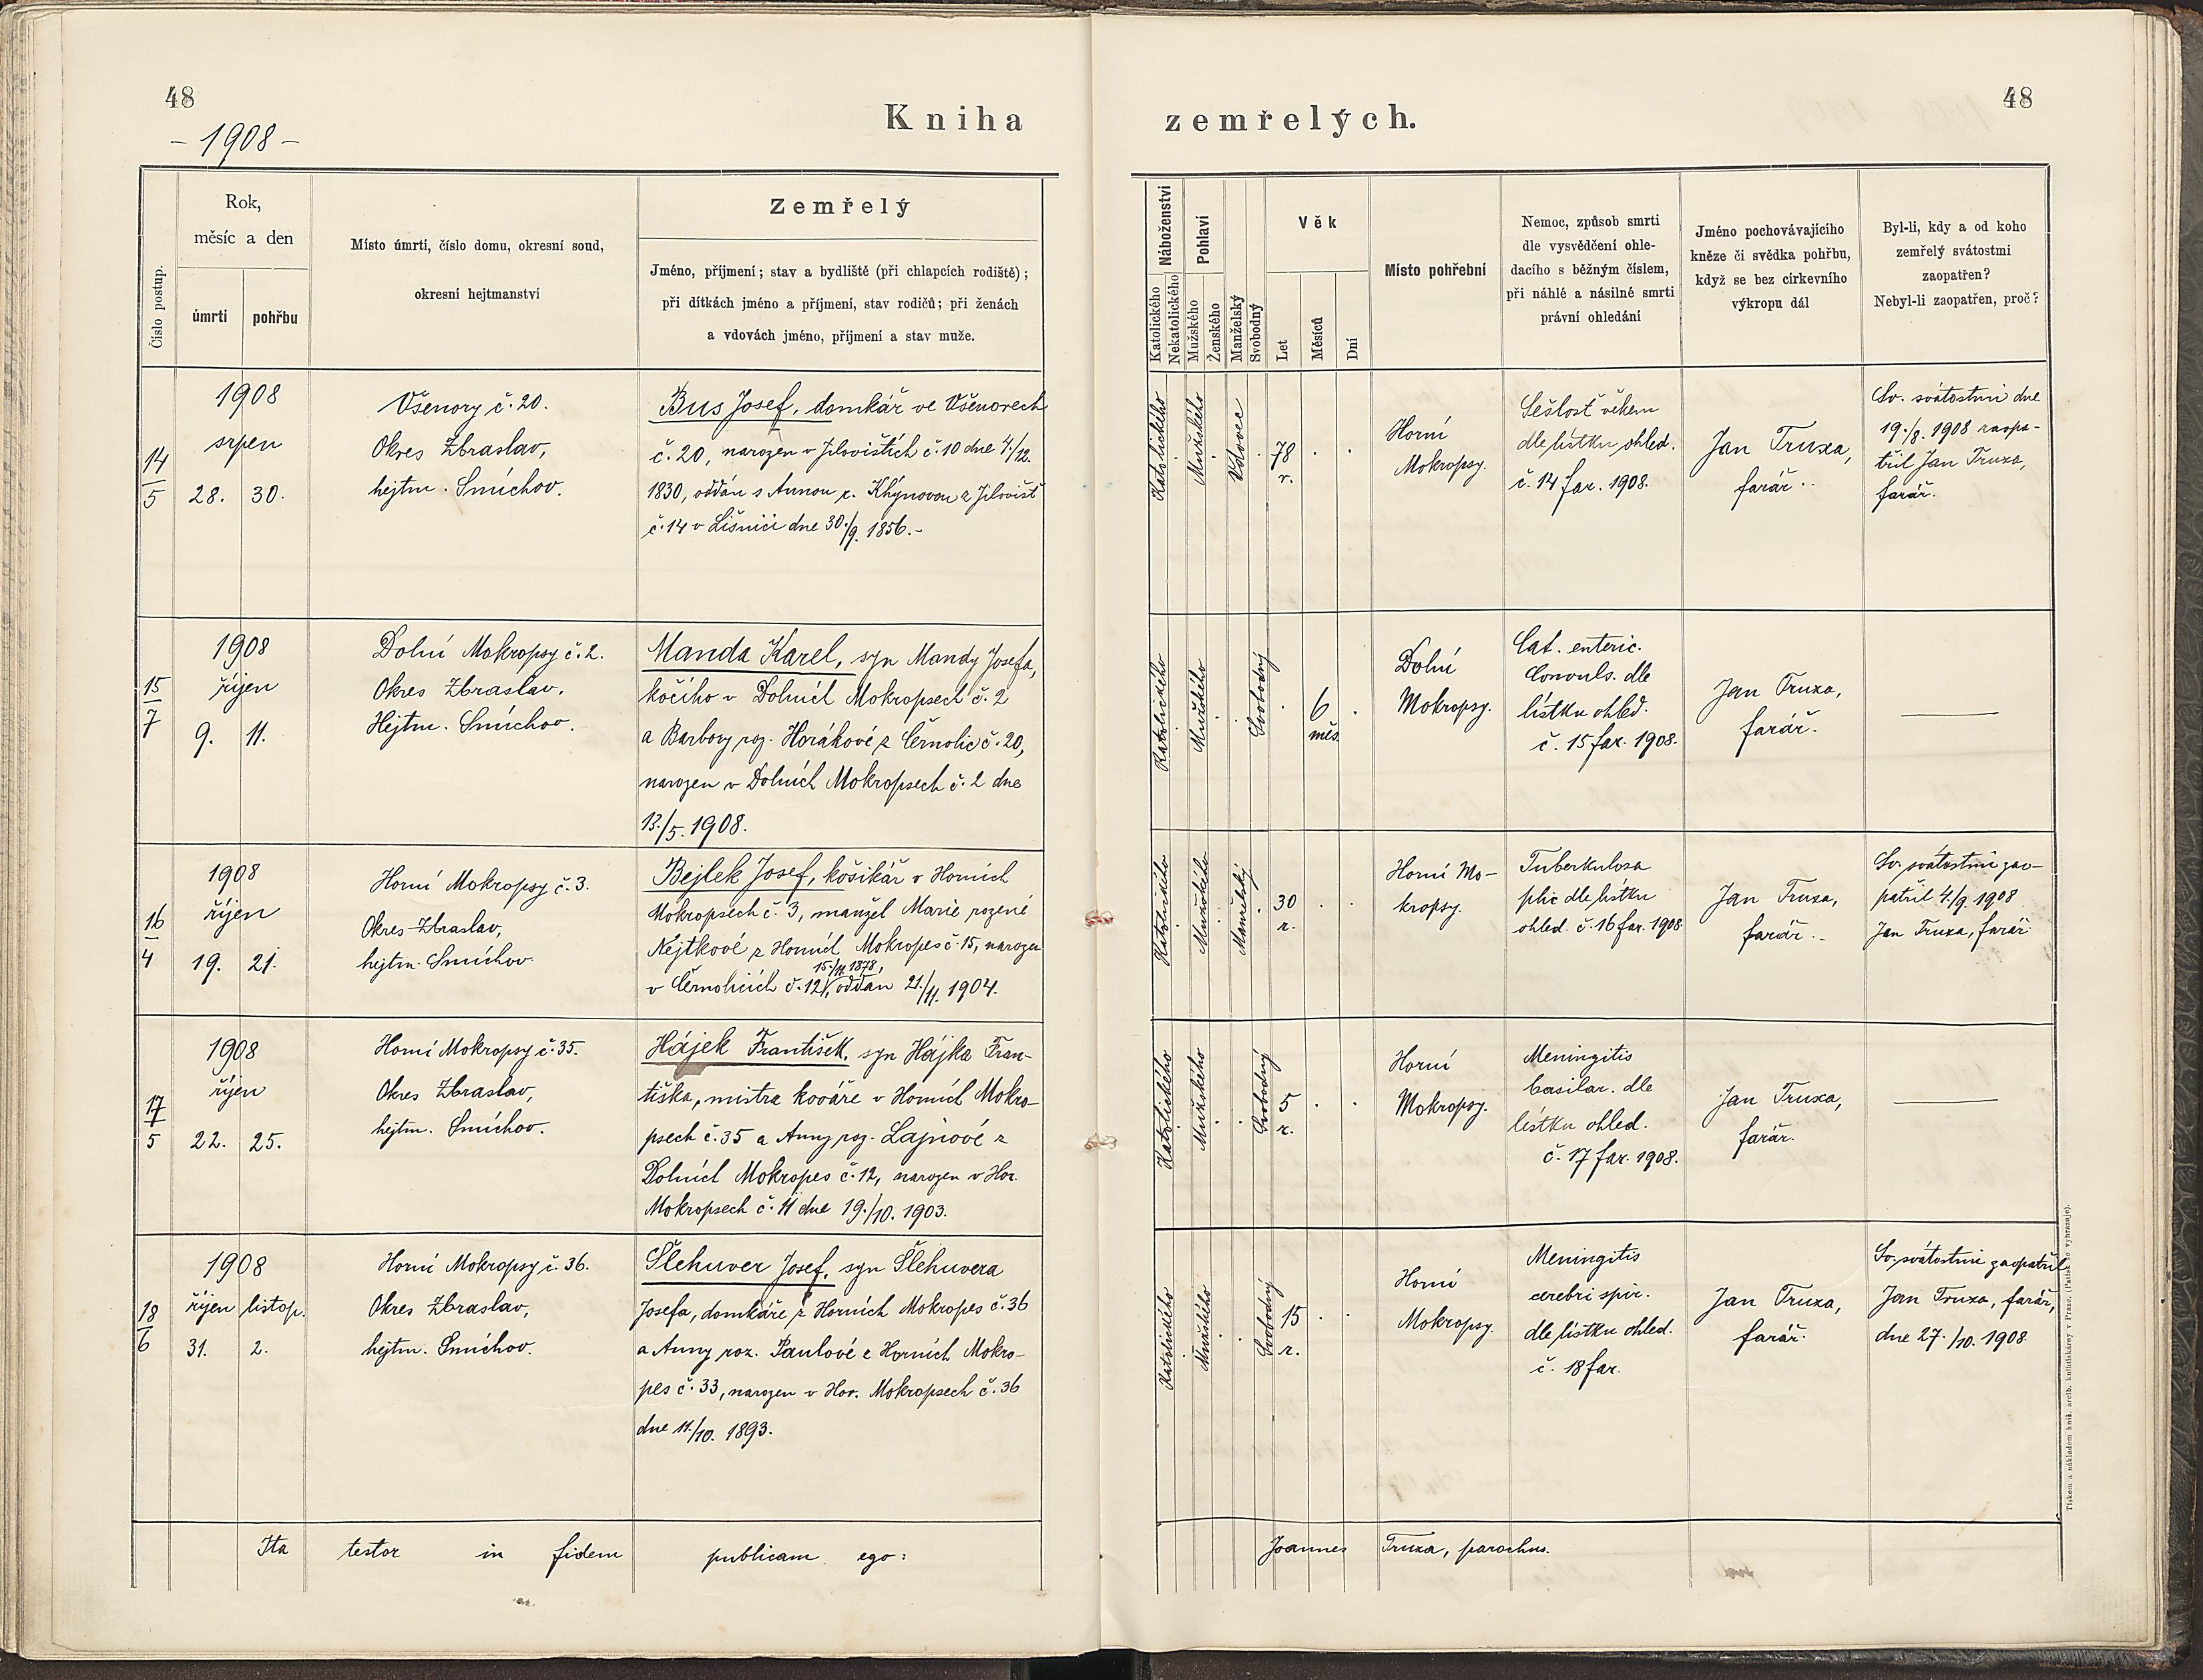 48
- 1908 -
Kniha
Číslo postup.
Rok,
měsíc a den
úmrtí
pohřbu
Místo úmrtí, číslo domu, okresní soud,
okresní hejtmanství
Zemřelý
Jméno, příjmení; stav a bydliště (při chlapcích rodiště);
při dítkách jméno a příjmení, stav rodičů; při ženách
a vdovách jméno, příjmení a stav muže.
14
5
1908
srpen
28. 30.
Všenory č. 20.
Okres Zbraslav,
hejtm. Smíchov.
Bus Josef, domkář ve Všenorech
č. 20, narozen v Jílovištích č. 10 dne 4./12.
1830, oddán s Annou r. Khýnovou z Jílovišť
č. 14 v Líšnici dne 30./9. 1856.-
15
7
1908
říjen
9. 11.
Dolní Mokropsy č. 2.
Okres Zbraslav.
Hejtm. Smíchov.
Manda Karel, syn Mandy Josefa,
kočího v Dolních Mokropsech č. 2
a Barbory roz. Horákové z Černolic č. 20,
narozen v Dolních Mokropsech č. 2 dne
13./5. 1908.
16
4
1908
říjen
19. 21.
Horní Mokropsy č. 3.
Okres Zbraslav,
hejtm. Smíchov.
Bejlek Josef, košíkář v Horních
Mokropsech č. 3, manžel Marie rozené
Nejtkové z Horních Mokropes č. 15, narozen
15./11. 1878,
v Černolicích č. 12, oddán 21./11. 1904.
17
5
1908
říjen
22. 25.
Horní Mokropsy č. 35.
Okres Zbraslav,
hejtm. Smíchov.
Hájek František, syn Hájka Fran-
tiška, mistra kováře v Horních Mokro-
psech č. 35 a Anny roz. Lajnové z
Dolních Mokropes č. 12, narozen v Hor.
Mokropsech č. 11 dne 19./10. 1903.
18
6
1908
říjen listop.
31. 2.
Horní Mokropsy č. 36.
Okres Zbraslav,
hejtm. Smíchov.
Šlehuver Josef, syn Šlehuvera
Josefa, domkáře z Horních Mokropes č. 36
a Anny roz. Paulové z Horních Mokro-
pes č. 33, narozen v Hor. Mokropsech č. 36
dne 11./10. 1893.
Ita testor in fidem publicam ego:
48
zemřelých.
Náboženství
Katolického
Nekatolického
Pohlaví
Mužského
Ženského
Manželský
Svobodný
Věk
Let
Měsíců
Dní
Místo pohřební
Nemoc, způsob smrti
dle vysvědčení ohle-
dacího s běžným číslem,
při náhlé a násilné smrti
právní ohledání
Jméno pochovávajícího
kněze či svědka pohřbu,
když se bez církevního
výkropu dál
Byl-li, kdy a od koho
zemřelý svátostmi
zaopatřen?
Nebyl-li zaopatřen, proč?
Katolického
Mužského
Vdovec
78
r.
Horní
Mokropsy.
Sešlosť věkem
dle lístku ohled.
č. 14 far. 1908.
Jan Truxa,
farář.
Sv. svátostmi dne
19./8. 1908 zaopa-
třil Jan Truxa,
farář.
Katolického
Mužského
Svobodný
6
měs.
Dolní
Mokropsy.
Cat. enteric.
Convuls. dle
lístku ohled.
č. 15 far. 1908.
Jan Truxa,
farář.
Katolického
Mužského
Manželský
30
r.
Horní Mo-
kropsy.
Tuberkulosa
plic dle lístku
ohled. č. 16 far. 1908.
Jan Truxa,
farář.
Sv. svátostmi zao-
patřil 4./9. 1908
Jan Truxa, farář.
Katolického
Mužského
Svobodný
5
r.
Horní
Mokropsy.
Meningitis
basilar. dle
lístku ohled.
č. 17 far. 1908.
Jan Truxa,
farář.
Katolického
Mužského
Svobodný
15
r.
Horní
Mokropsy.
Meningitis
cerebri spir.
dle lístku ohled.
č. 18 far.
Jan Truxa,
farář.
Sv. svátostmi zaopatřil
Jan Truxa, farář,
dne 27./10. 1908.
Joannes Truxa, parochus.
Tiskem a nákladem kníž. arcib. knihtiskárny v Praze.